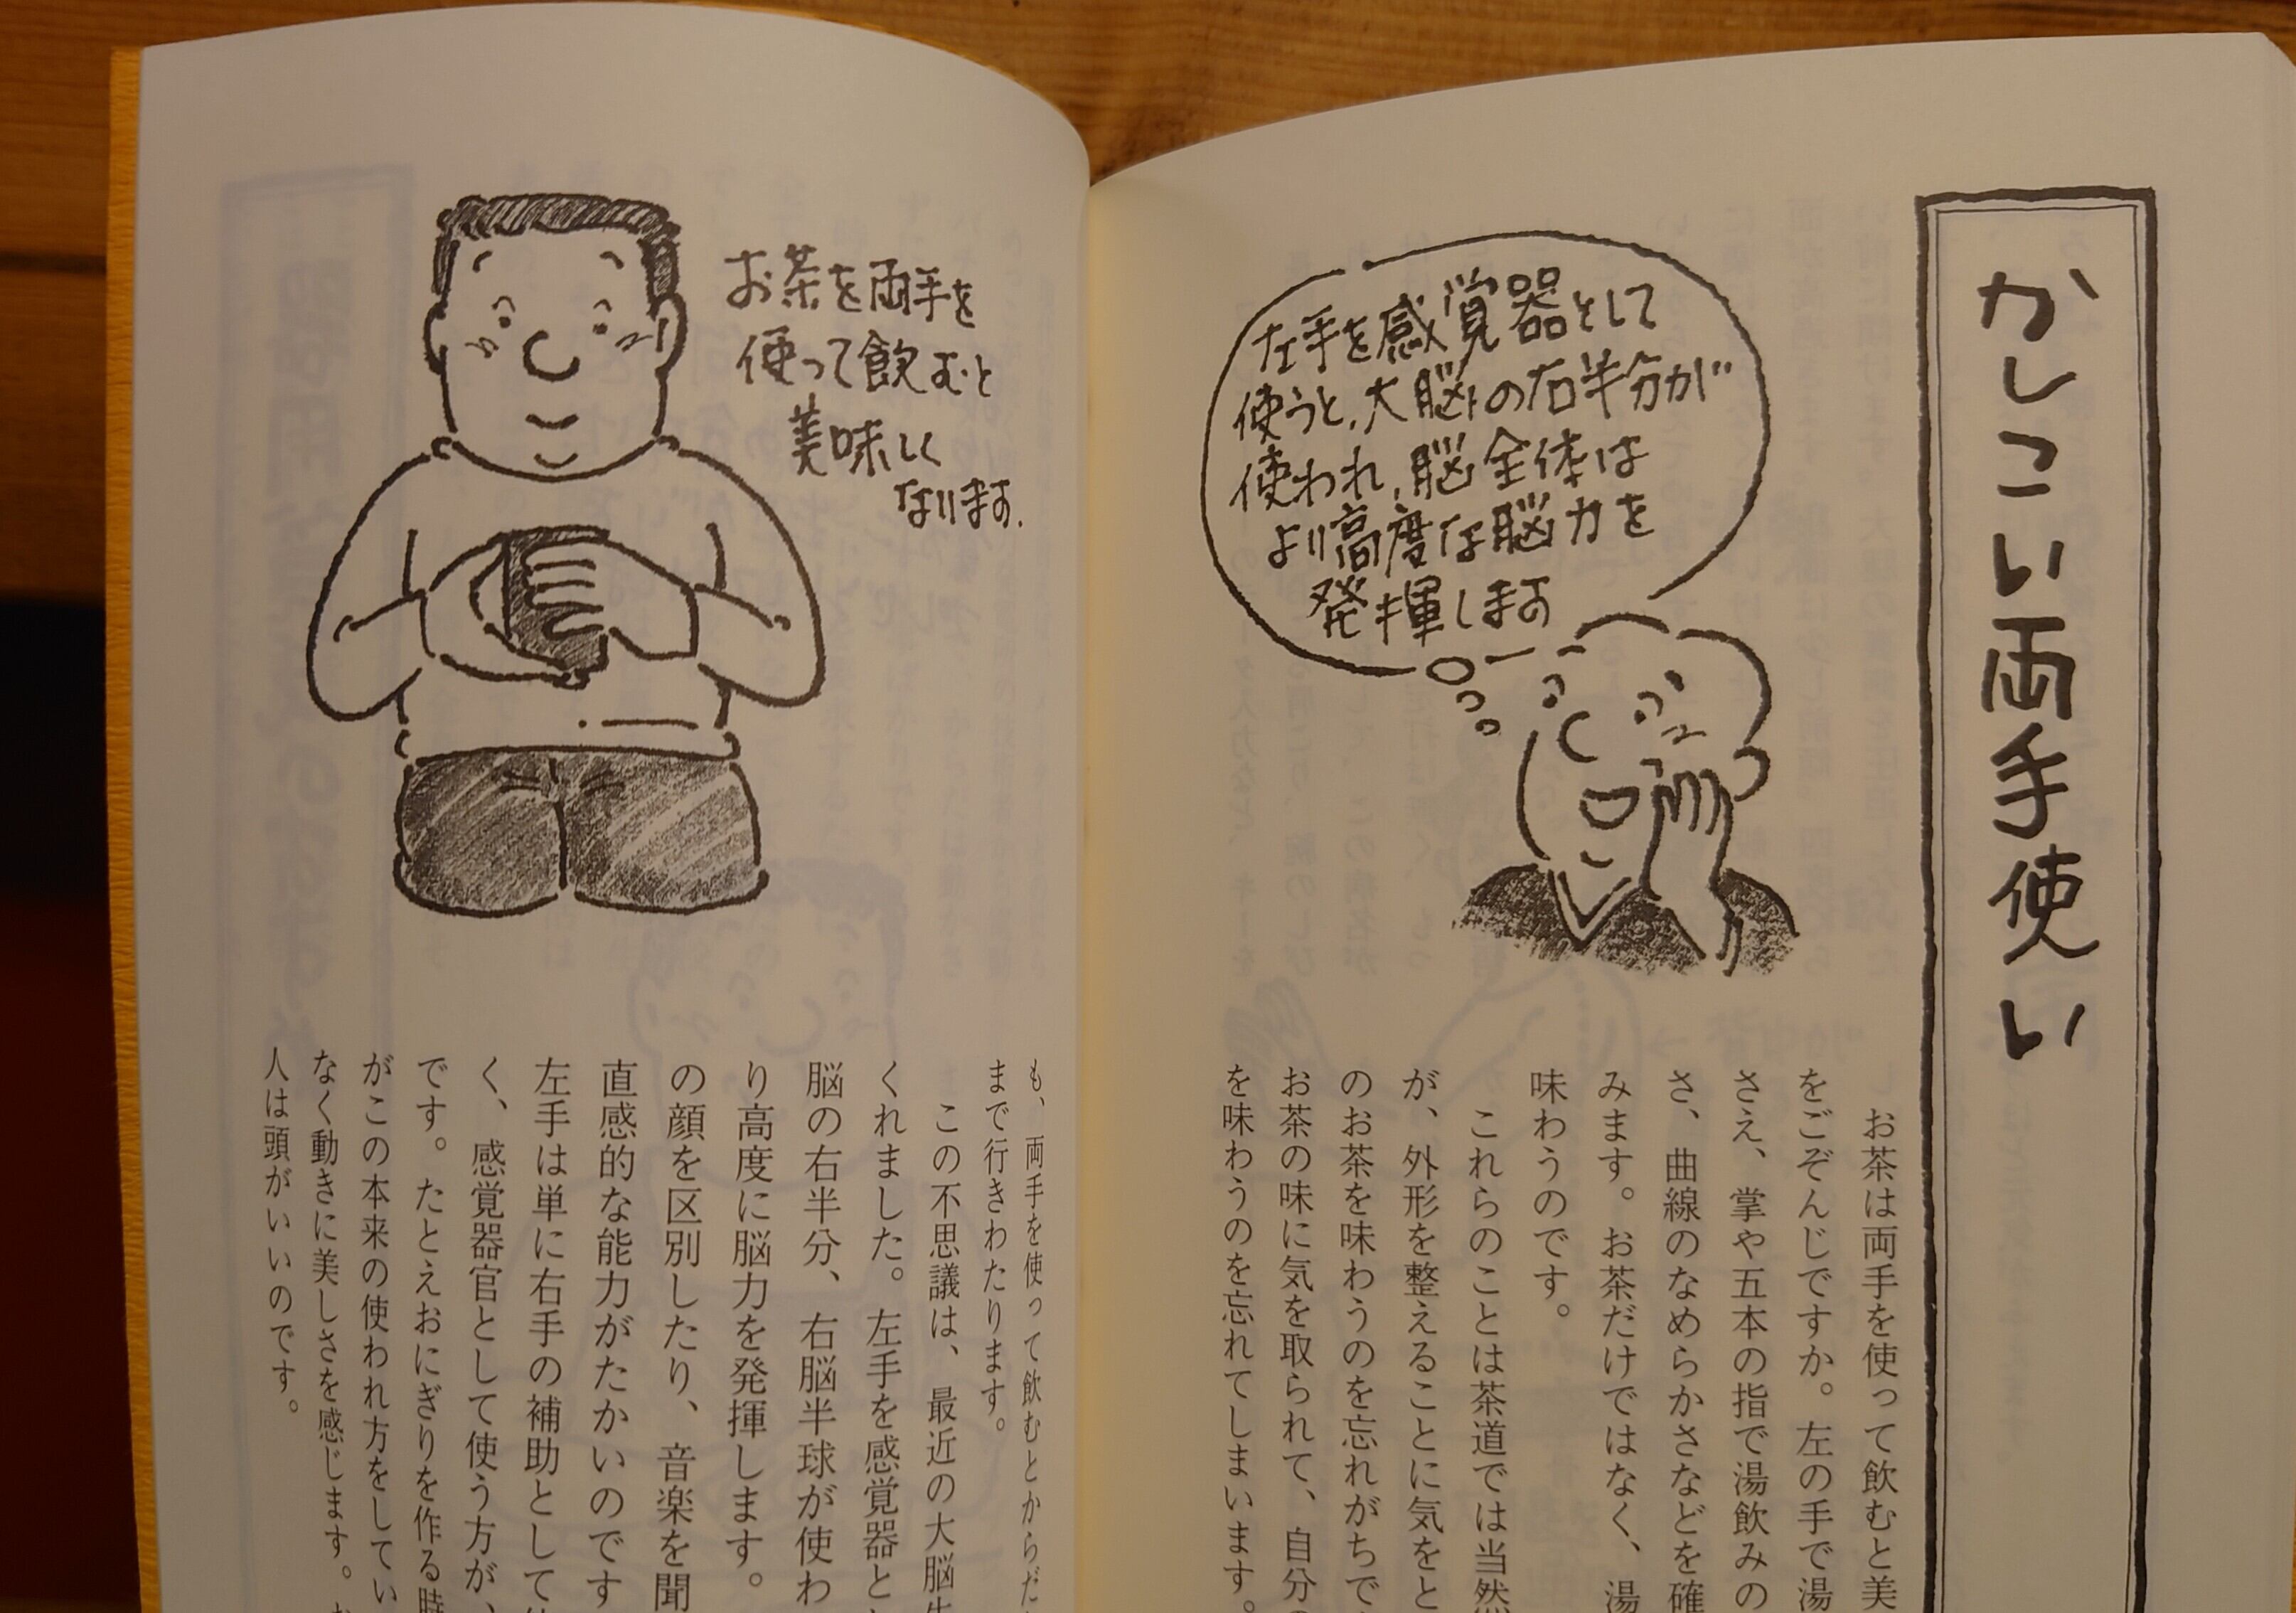 かしこい両手使い
左手を感覚器として
使うと、大脳の右半分が
使われ、脳全体は
より高度な脳力を
発揮します
お茶は両手を使って飲むと美
をごぞんじですか。左の手で湯
さえ、掌や五本の指で湯飲みの
さ、曲線のなめらかさなどを確
みます。お茶だけではなく、湯
味わうのです。
これらのことは茶道では当然
が、外形を整えることに気をと
のお茶を味わうのを忘れがちで
お茶の味に気を取られて、自分の
を味わうのを忘れてしまいます。
お茶を両手を
使って飲むと
美味しく
なります.
も、両手を使って飲むとからだ
まで行きわたります。
この不思議は、最近の大脳生
くれました。左手を感覚器と
脳の右半分、右脳半球が使わ
り高度に脳力を発揮します。
の顔を区別したり、音楽を聞
直感的な能力がたかいのです
左手は単に右手の補助として
く、感覚器官として使う方が、
です。たとえおにぎりを作る時
がこの本来の使われ方をしてい
なく動きに美しさを感じます。
人は頭がいいのです。